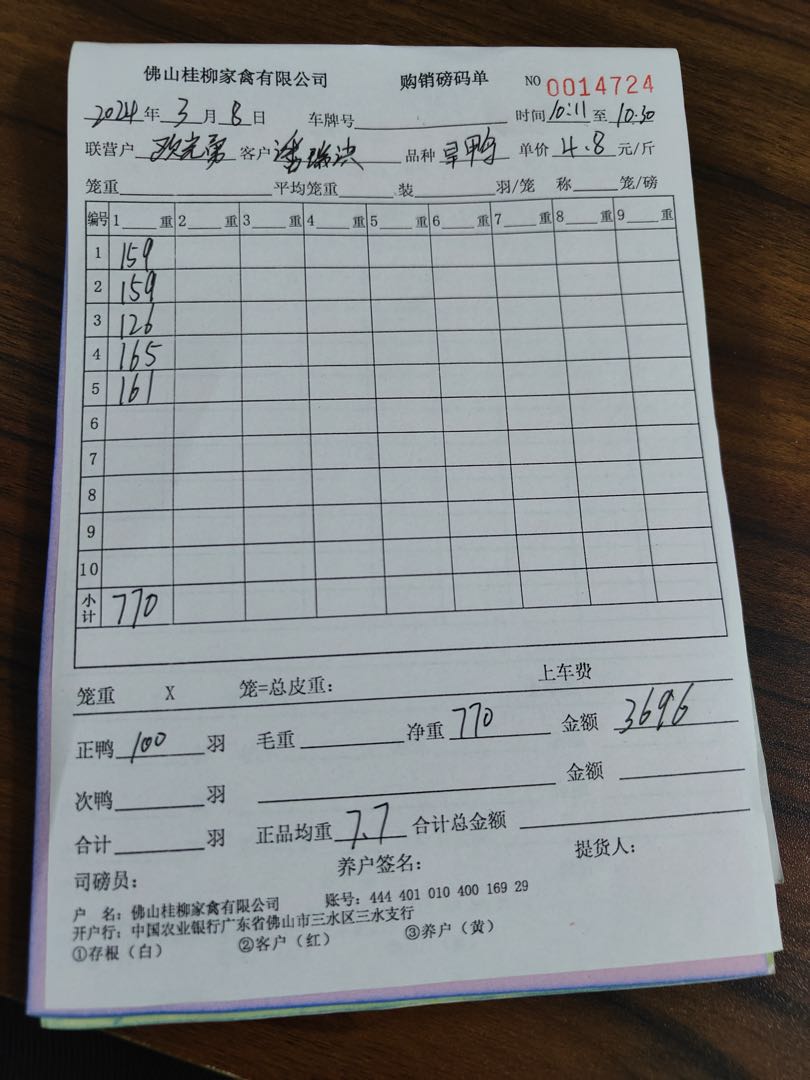 佛山桂柳家禽有限公司 购销磅码单 NO 0014724
2024年3月8日 车牌号 时间10:11至10:30
联营户 欧光勇 客户 潘瑞洪 品种 旱鸭 单价 4.8 元/斤
笼重 平均笼重 装 羽/笼 称 笼/磅
编号 1 重 2 重 3 重 4 重 5 重 6 重 7 重 8 重 9 重
1 159
2 159
3 126
4 165
5 161
6
7
8
9
10
小计 770
笼重 X 笼=总皮重: 上车费
正鸭 100 羽 毛重 净重 770 金额 3696
次鸭 羽 金额
合计 羽 正品均重 7.7 合计总金额
司磅员: 养户签名: 提货人:
户 名: 佛山桂柳家禽有限公司 账号: 444 401 010 400 169 29
开户行: 中国农业银行广东省佛山市三水区三水支行
①存根(白) ②客户(红) ③养户(黄)